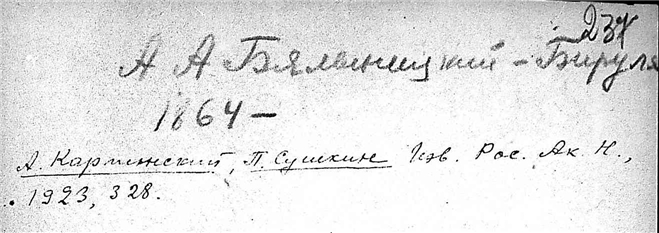 237
А А Бялыницкий-Бируля
1864 —
А. Карпинский, П. Сушкин Изв. Рос. Ак. Н.,
1923, 328.